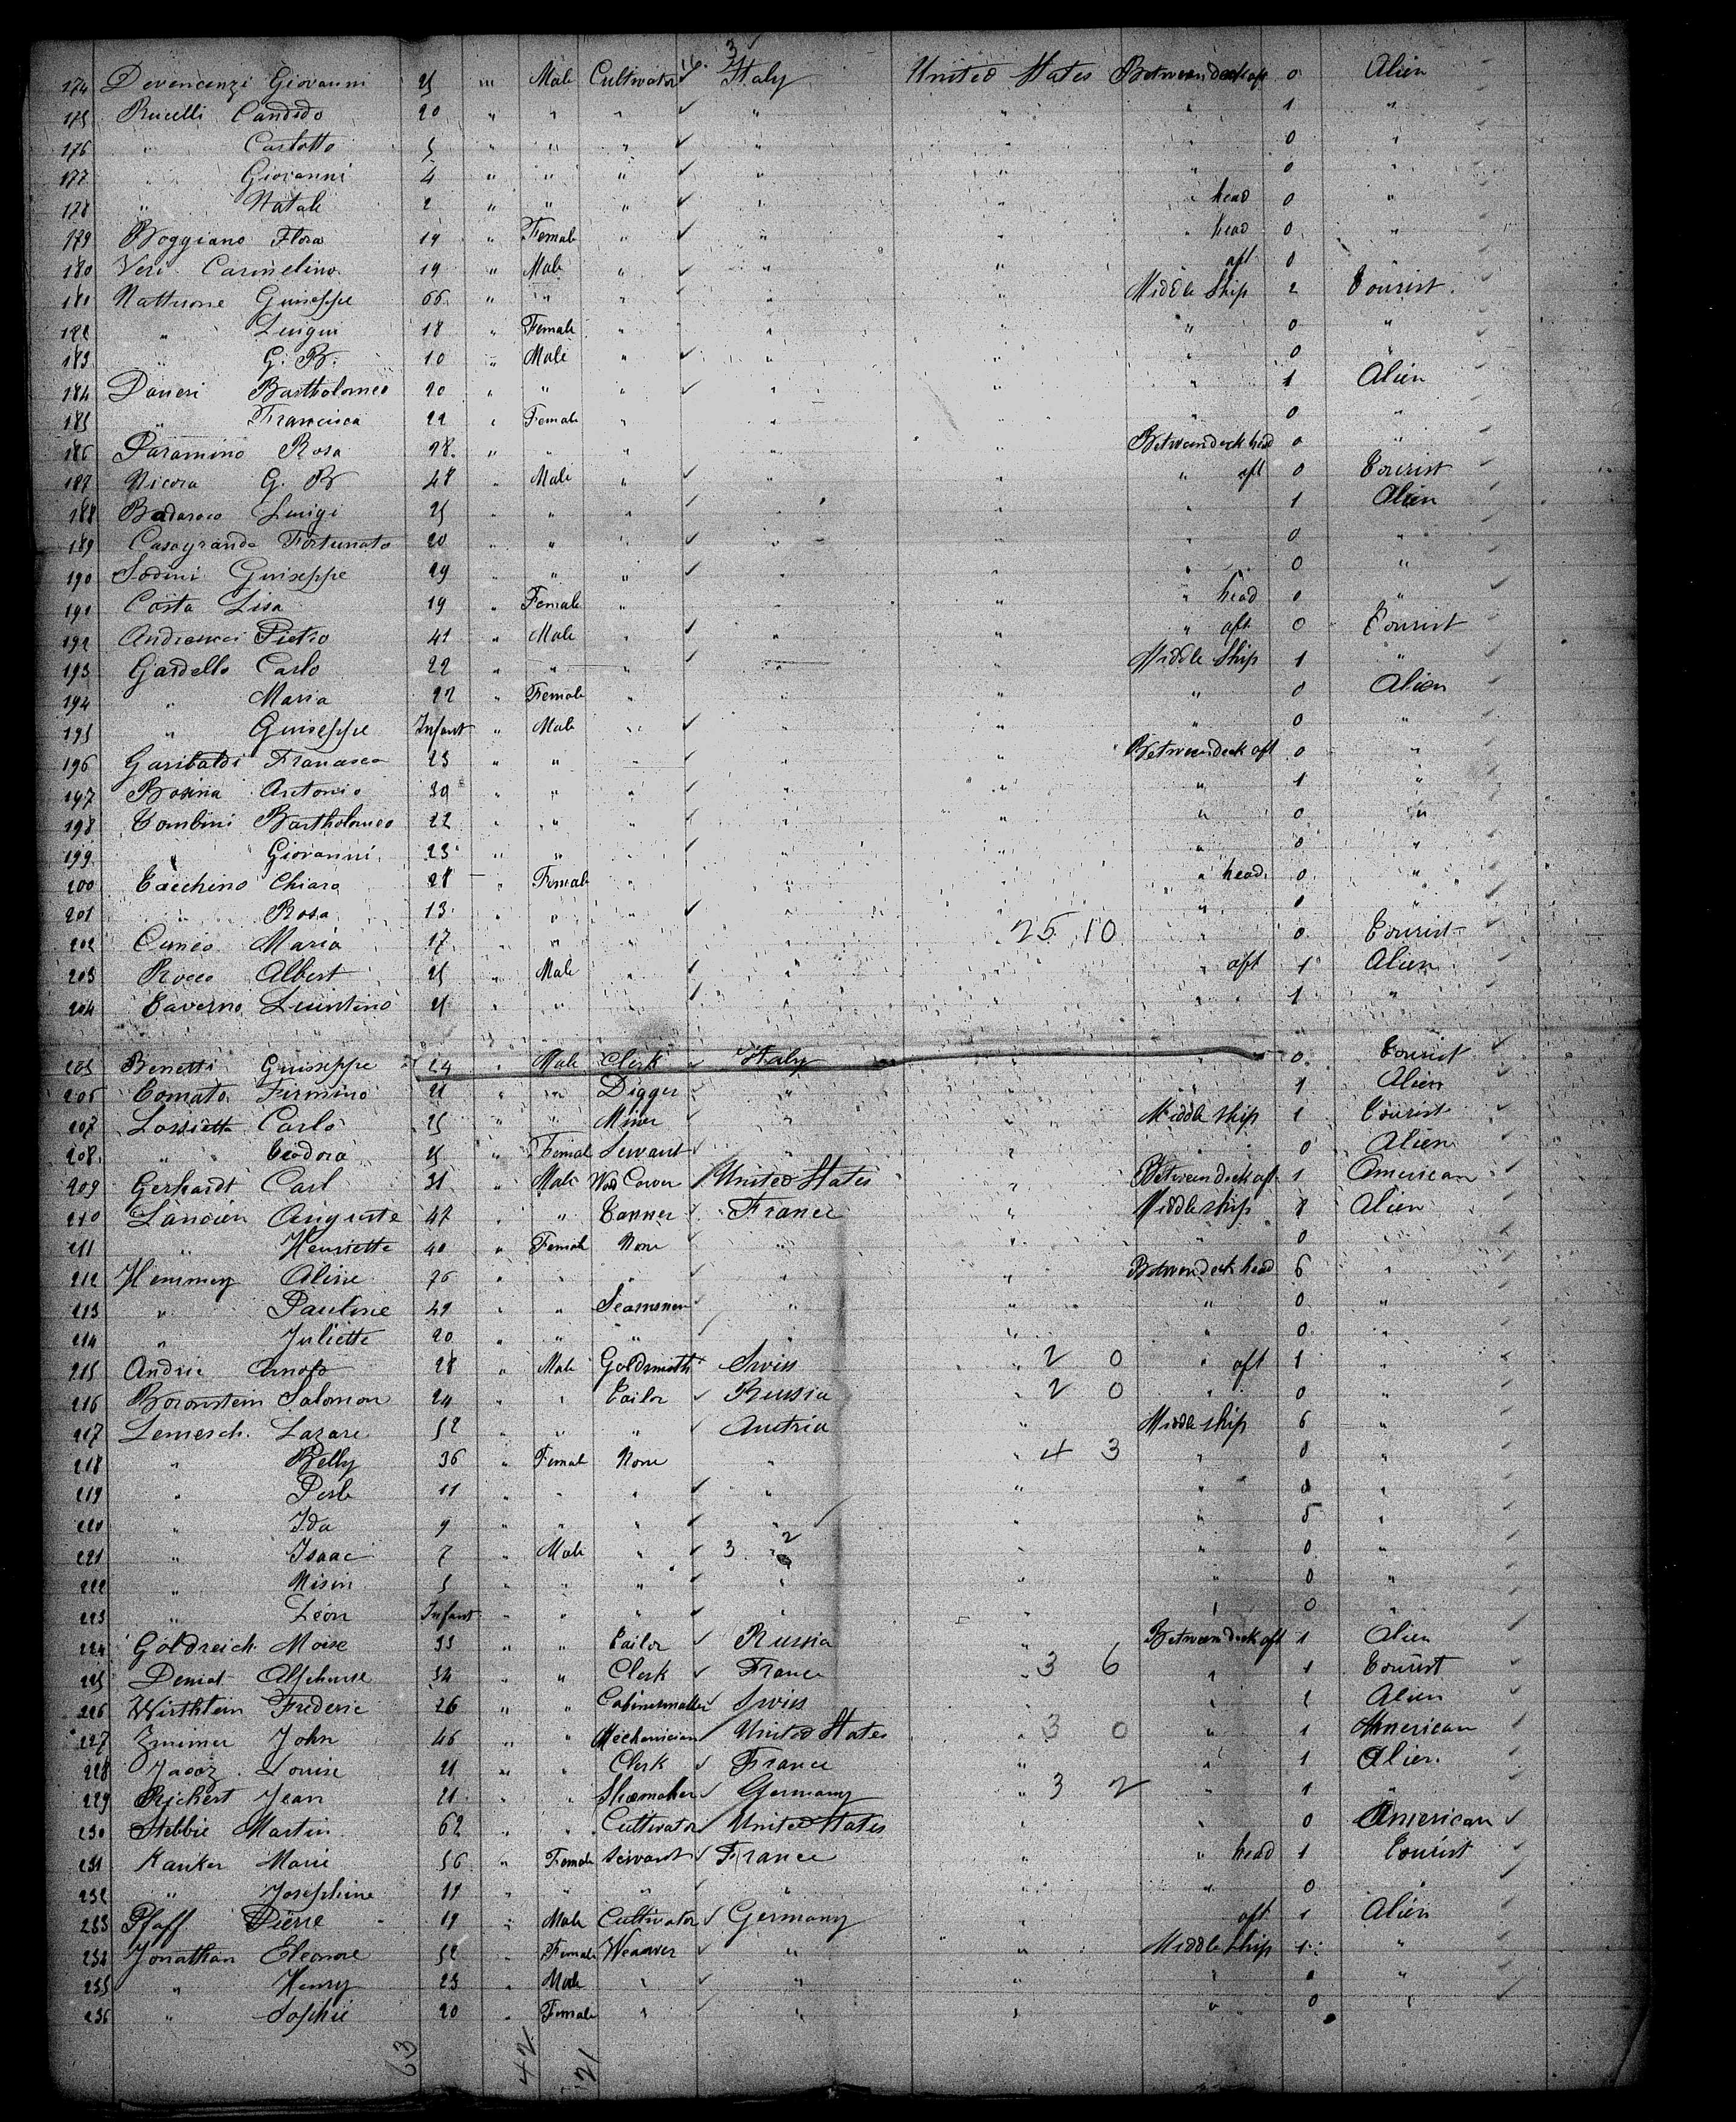 16. 3
174 Devencenzi Giovanni 25 " Male Cultivator Italy United States Between deck aft 0 Alien
175 Rucelli Candido 20 " " " " " " 1 "
176 " Carlotto 5 " " " " " " 0 "
177 " Giovanni 4 " " " " " " 0 "
178 " Natale 2 " " " " " " head 0 "
179 Boggiano Flora 19 " Female " " " " head 0 "
180 Veri Carmelino 19 " Male " " " aft 0
181 Nattuone Guiseppe 66 " " " " " Middle Ship 2 Tourist
182 " Luigui 18 " Female " " " " 0 "
183 " G. B. 10 " Male " " " " 0 "
184 Daneri Bartholomeo 20 " " " " " " 1 Alien
185 " Francisca 22 " Female " " " " 0 "
186 Paramino Rosa 28 " " " " " Between deck head 0 "
187 Nicora G. B 48 " Male " " " " aft 0 Tourist
188 Badaroco Luigi 25 " " " " " " 1 Alien
189 Casagrande Fortunato 20 " " " " " " 0 "
190 Sodini Guiseppe 29 " " " " " " 0 "
191 Costa Lisa 19 " Female " " " " head 0 "
192 Pietro 41 " Male " " " " aft 0 Tourist
193 Gardello Carlo 22 " " " " " Middle Ship 1 "
194 " Maria 22 " Female " " " " 0 Alien
195 " Guiseppe Infant " Male " " " " 0 "
196 Garibaldi Francasco 23 " " " " " Between deck aft 0 "
197 Bosina Antonio 30 " " " " " " 1 "
198 Tombini Bartholomeo 22 " " " " " " 0 "
199 " Giovanni 23 " " " " " " 0 "
200 Tacchino Chiara 28 " Female " " " " head 0 "
201 " Rosa 13 " " " " " " 0 "
202 Cuneo Maria 17 " " " " 25 10 " 0 Tourist
203 Rocco Albert 25 " Male " " " " aft 1 Alien
204 Taverno Luintino 21 " " " " " " 1 "
205 Benetti Guisseppe 24 " Male Clerk Italy " " 0 Tourist
206 Tomato Firmino 21 " " Digger " " " 1 Alien
207 Lossietta Carlo 25 " " Miner " " Middle ship 1 Tourist
208 " Teodora 25 " Female Servant " " " 0 Alien
209 Gerhardt Carl 31 " Male Wood Carver United States " Between deck aft 1 American
210 Lancien Auguste 47 " " Tanner France " Middle ship 8 Alien
211 " Henriette 40 " Female None " " " 0 "
212 Hemmey Aline 76 " " " " " Between deck head 6 "
213 " Pauline 49 " " " " " 0 "
214 " Juliette 20 " " " " " " 0 "
215 Andrie Arnold 28 " Male Goldsmith Swiss " 2 0 " aft 1 "
216 Boronstein Salomon 24 " " Tailor Russia " 2 0 " 0 "
217 Lemesch Lazare 52 " " " Austria " Middle ship 6 "
218 " Belly 36 " Female None " " 4 3 " 0 "
219 " Perle 11 " " " " " " 0 "
220 " Ida 9 " " " " " " 5 "
221 " Isaac 7 " Male " 3 " 2 " " 0 "
222 " Nisin 5 " " " " " " 0 "
223 " Léon Infant " " " " " " 0 "
224 Goldreich Moise 33 " " Tailor Russia " Between deck aft 1 Alien
225 Deniat Alphonse 34 " " Clerk France " 3 6 " 1 Tourist
226 Wirthlein Frederic 26 " " Cabinetmaker Swiss " " 1 Alien
227 Zmimer John 46 " " Mechanician United States " 3 0 " 1 American
228 Jacoz Louise 21 " " Clerk France " " 1 Alien
229 Richert Jean 21 " " Shoemaker Germany " 3 2 " 1 "
230 Stebbie Martin 62 " " Cultivator United States " " 0 American
231 Kanker Marie 56 " Female Servant France " " head 1 Tourist
232 " Josephine 11 " " " " " " 0 "
233 Pfaff Pierre 19 " Male Cultivator Germany " aft 1 Alien
234 Jonathan Eleonore 52 " Female Weawer " " Middle Ship 1 "
235 " Henry 23 " Male " " " " 0 "
236 " Sophie 20 " Female " " " " 0 "
63 42 21